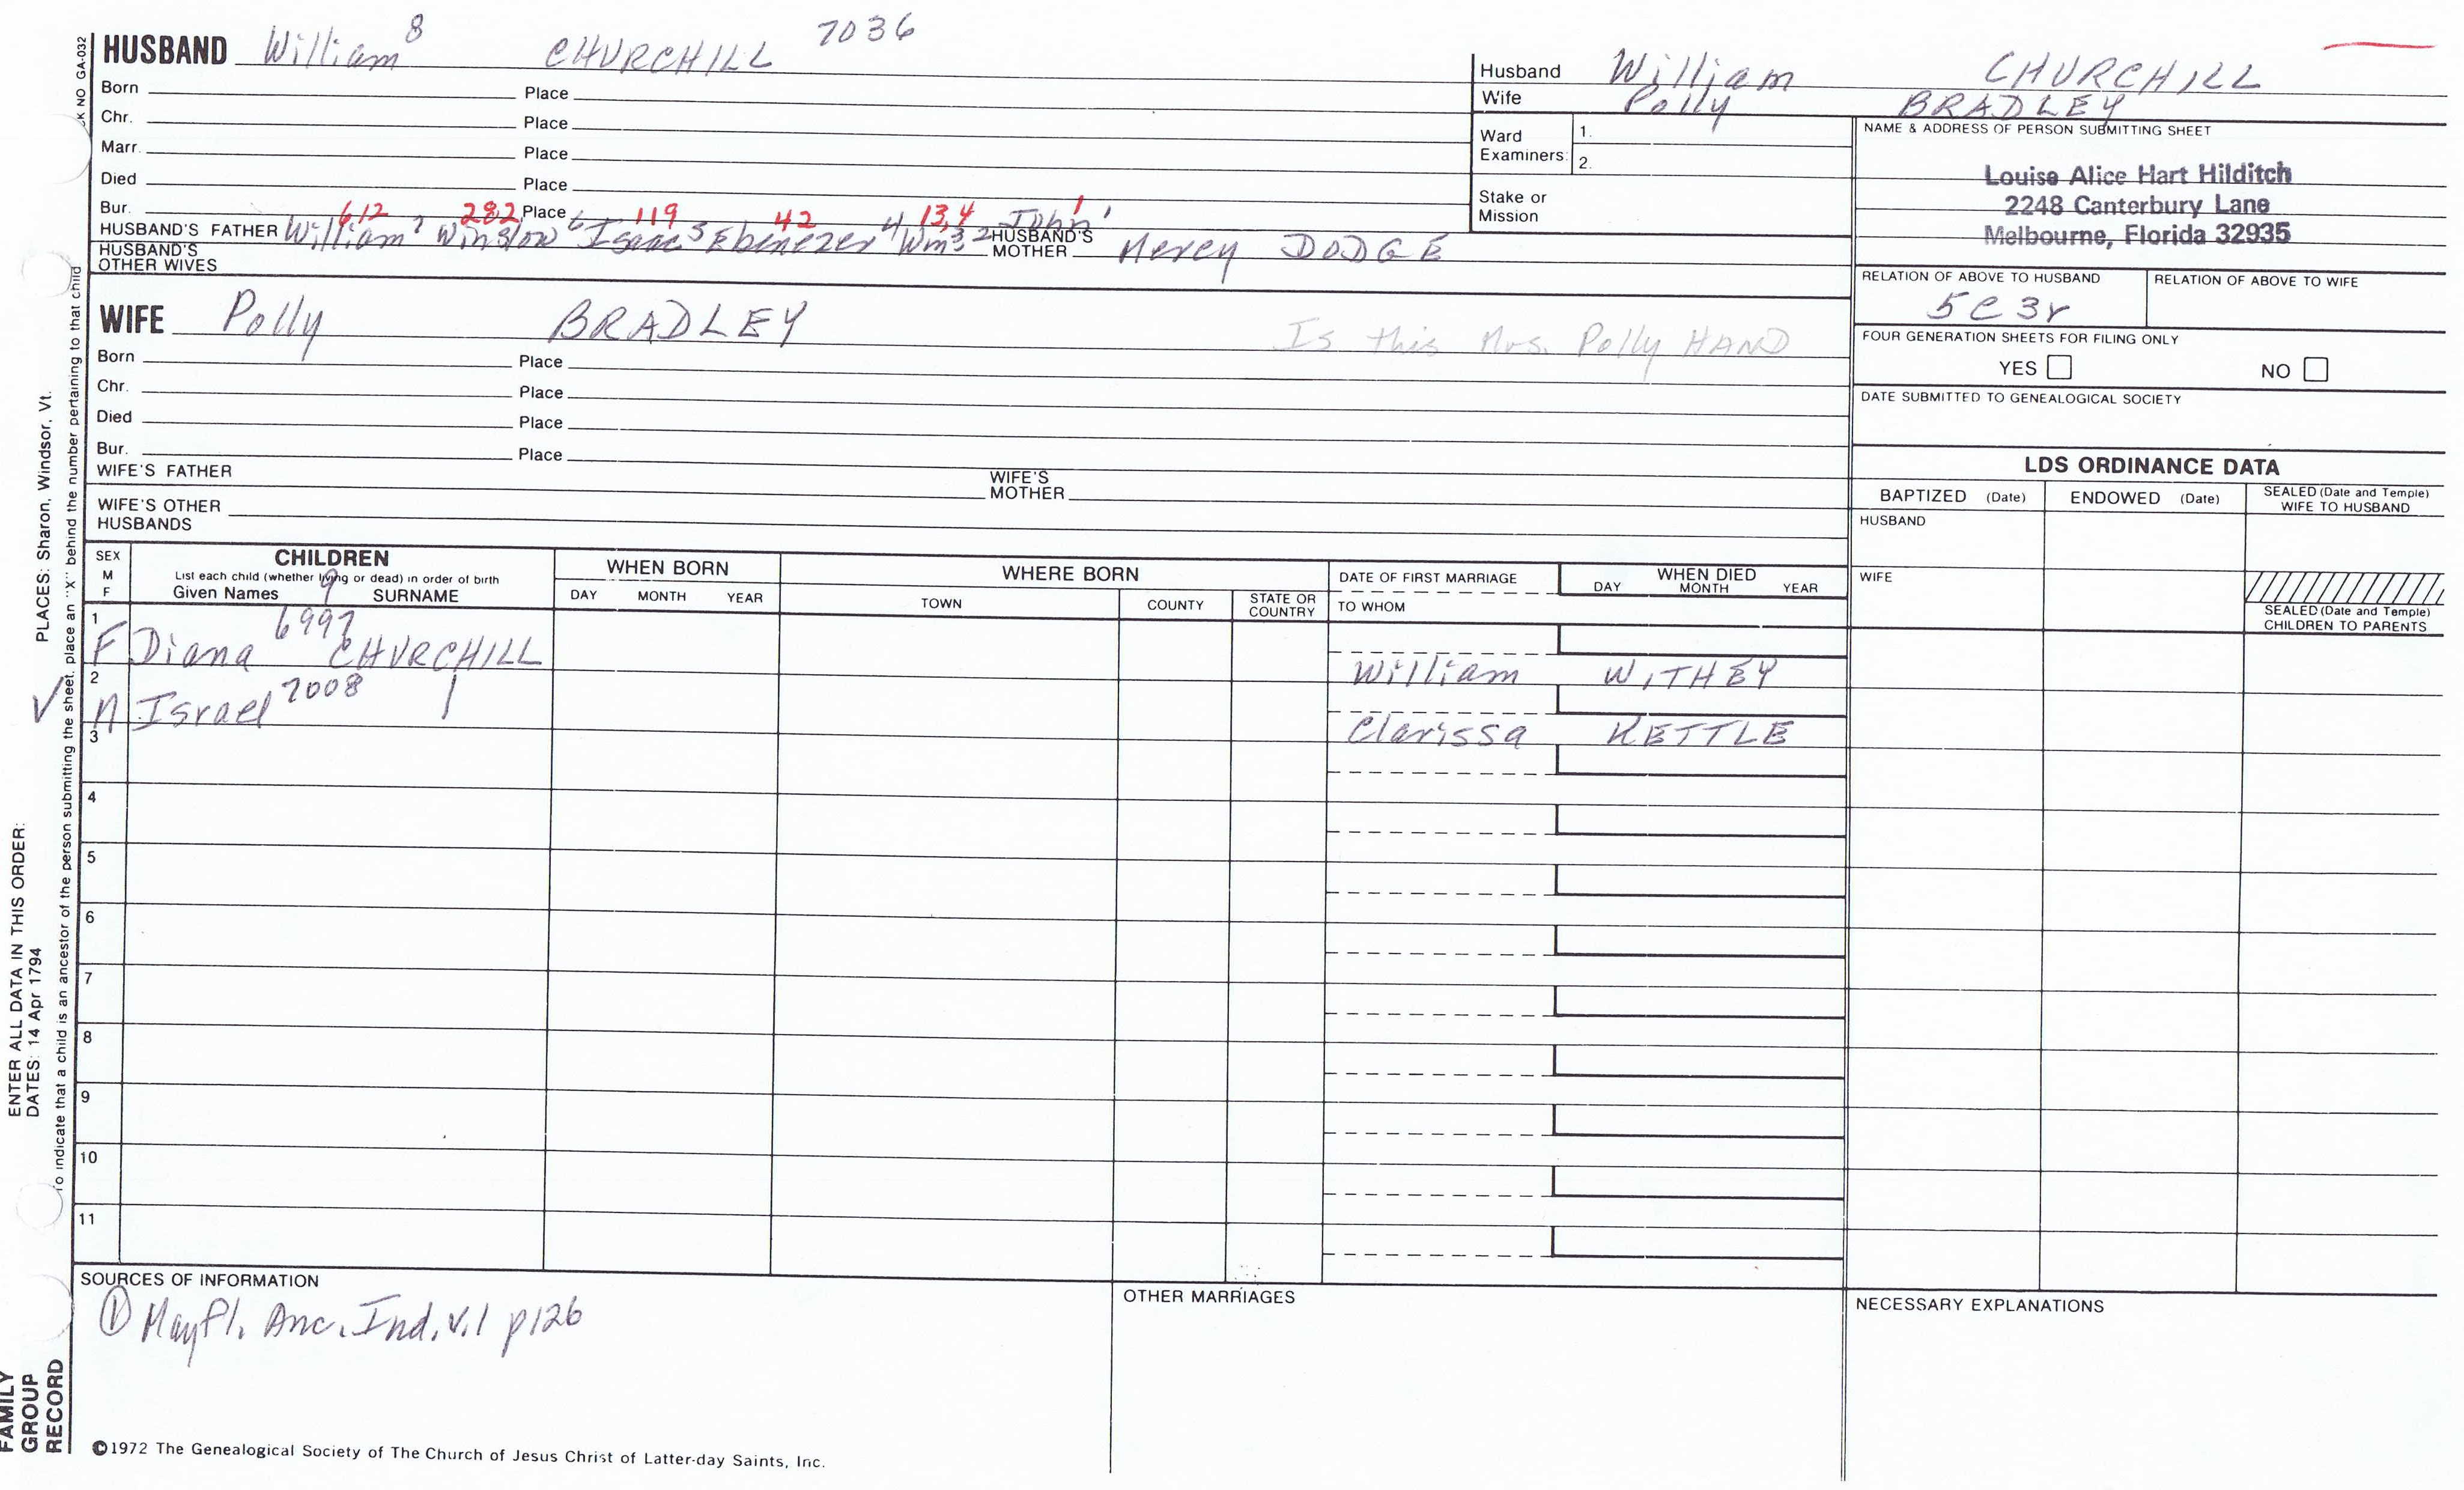 HUSBAND William 8 CHURCHILL 7036
Born Place
Chr. Place
Marr. Place
Died Place
Bur. Place
612 282 119 42 13,4 1
HUSBAND'S FATHER William 7 Winslow 6 Isaac 5 Ebenezer 4 Wm 3 2 John 1 HUSBAND'S MOTHER Mercy DODGE
HUSBAND'S OTHER WIVES
Husband William CHURCHILL
Wife Polly BRADLEY
Ward Examiners: 1.
2.
Stake or Mission
NAME & ADDRESS OF PERSON SUBMITTING SHEET
Louise Alice Hart Hilditch
2248 Canterbury Lane
Melbourne, Florida 32935
RELATION OF ABOVE TO HUSBAND RELATION OF ABOVE TO WIFE
5C 3r
FOUR GENERATION SHEETS FOR FILING ONLY
YES NO
DATE SUBMITTED TO GENEALOGICAL SOCIETY
WIFE Polly BRADLEY Is this Mrs. Polly HAND
Born Place
Chr. Place
Died Place
Bur. Place
WIFE'S FATHER WIFE'S MOTHER
WIFE'S OTHER HUSBANDS
LDS ORDINANCE DATA
BAPTIZED (Date) ENDOWED (Date) SEALED (Date and Temple) WIFE TO HUSBAND
HUSBAND
WIFE
SEALED (Date and Temple) CHILDREN TO PARENTS
SEX M F
CHILDREN
List each child (whether living or dead) in order of birth
Given Names 9 SURNAME
WHEN BORN
DAY MONTH YEAR
WHERE BORN
TOWN COUNTY STATE OR COUNTRY
DATE OF FIRST MARRIAGE
TO WHOM
WHEN DIED
DAY MONTH YEAR
1 F Diana 6997 CHURCHILL William WITHEY
2 M Israel 7008 Clarissa KETTLE
3
4
5
6
7
8
9
10
11
SOURCES OF INFORMATION
① Mayfl. Anc. Ind. v.1 p126
OTHER MARRIAGES
NECESSARY EXPLANATIONS
©1972 The Genealogical Society of The Church of Jesus Christ of Latter-day Saints, Inc.
NO GA-032
To indicate that a child is an ancestor of the person submitting the sheet, place an "X" behind the number pertaining to that child
ENTER ALL DATA IN THIS ORDER: PLACES: Sharon, Windsor, Vt.
DATES: 14 Apr 1794
FAMILY
GROUP
RECORD